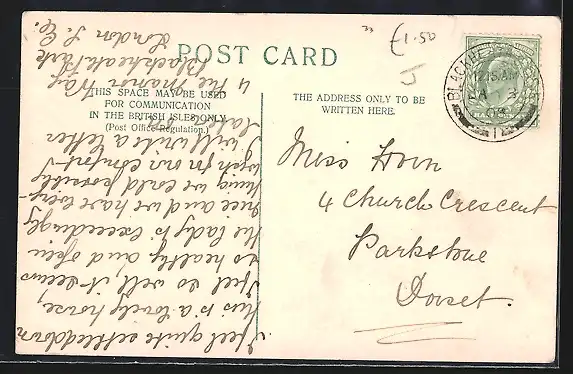 POST CARD
£1.50
THIS SPACE MAY BE USED
FOR COMMUNICATION
IN THE BRITISH ISLES ONLY
(Post Office Regulation.)
THE ADDRESS ONLY TO BE
WRITTEN HERE.
BLACKHE
12.15 AM
JA 3
08
Miss
4 Church Crescent
Parkstone
Dorset.
I feel quite settled down
this is a lovely house,
I feel so well it seems
so healthy and open
the lady is exceedingly
nice and we have every-
thing we could possibly
wish in our comfort-
I will write a letter
later on
4 The Manor Way
Blackheath Park
London S.E.